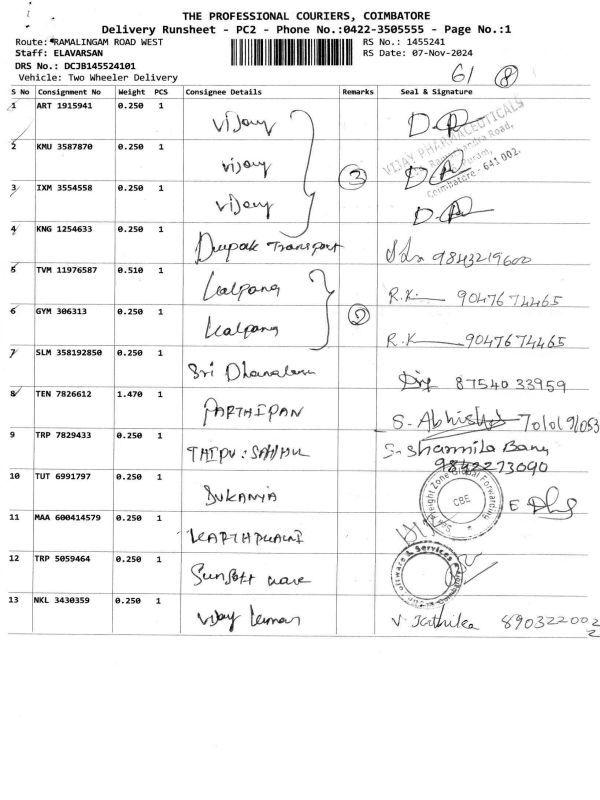 THE PROFESSIONAL COURIERS, COIMBATORE
Delivery Runsheet - PC2 - Phone No.:0422-3505555 - Page No.:1
Route: RAMALINGAM ROAD WEST RS No.: 1455241
Staff: ELAVARSAN RS Date: 07-Nov-2024
DRS No.: DCJB145524101
Vehicle: Two Wheeler Delivery 61 8
S No Consignment No Weight PCS Consignee Details Remarks Seal & Signature
1 ART 1915941 0.250 1 Vijay
VIJAY PHARMACEUTICALS
2 KMU 3587870 0.250 1 Vijay 3
Coimbatore - 641 002.
3 IXM 3554558 0.250 1 Vijay
4 KNG 1254633 0.250 1 Deepak Transport 9843219600
5 TVM 11976587 0.510 1 Kalpana R.K 9047674465
6 GYM 306313 0.250 1 Kalpana 2 R.K 9047674465
7 SLM 358192850 0.250 1 Sri 87540 33959
8 TEN 7826612 1.470 1 PARTHIPAN S. Abhishek
9 TRP 7829433 0.250 1 S. Sharmila Banu
9842273090
10 TUT 6991797 0.250 1 SUKANYA
Freight Zone Global Forwarding
CBE
11 MAA 600414579 0.250 1
12 TRP 5059464 0.250 1 Sunsoft
Software & Services
13 NKL 3430359 0.250 1 Vijay Kumar V